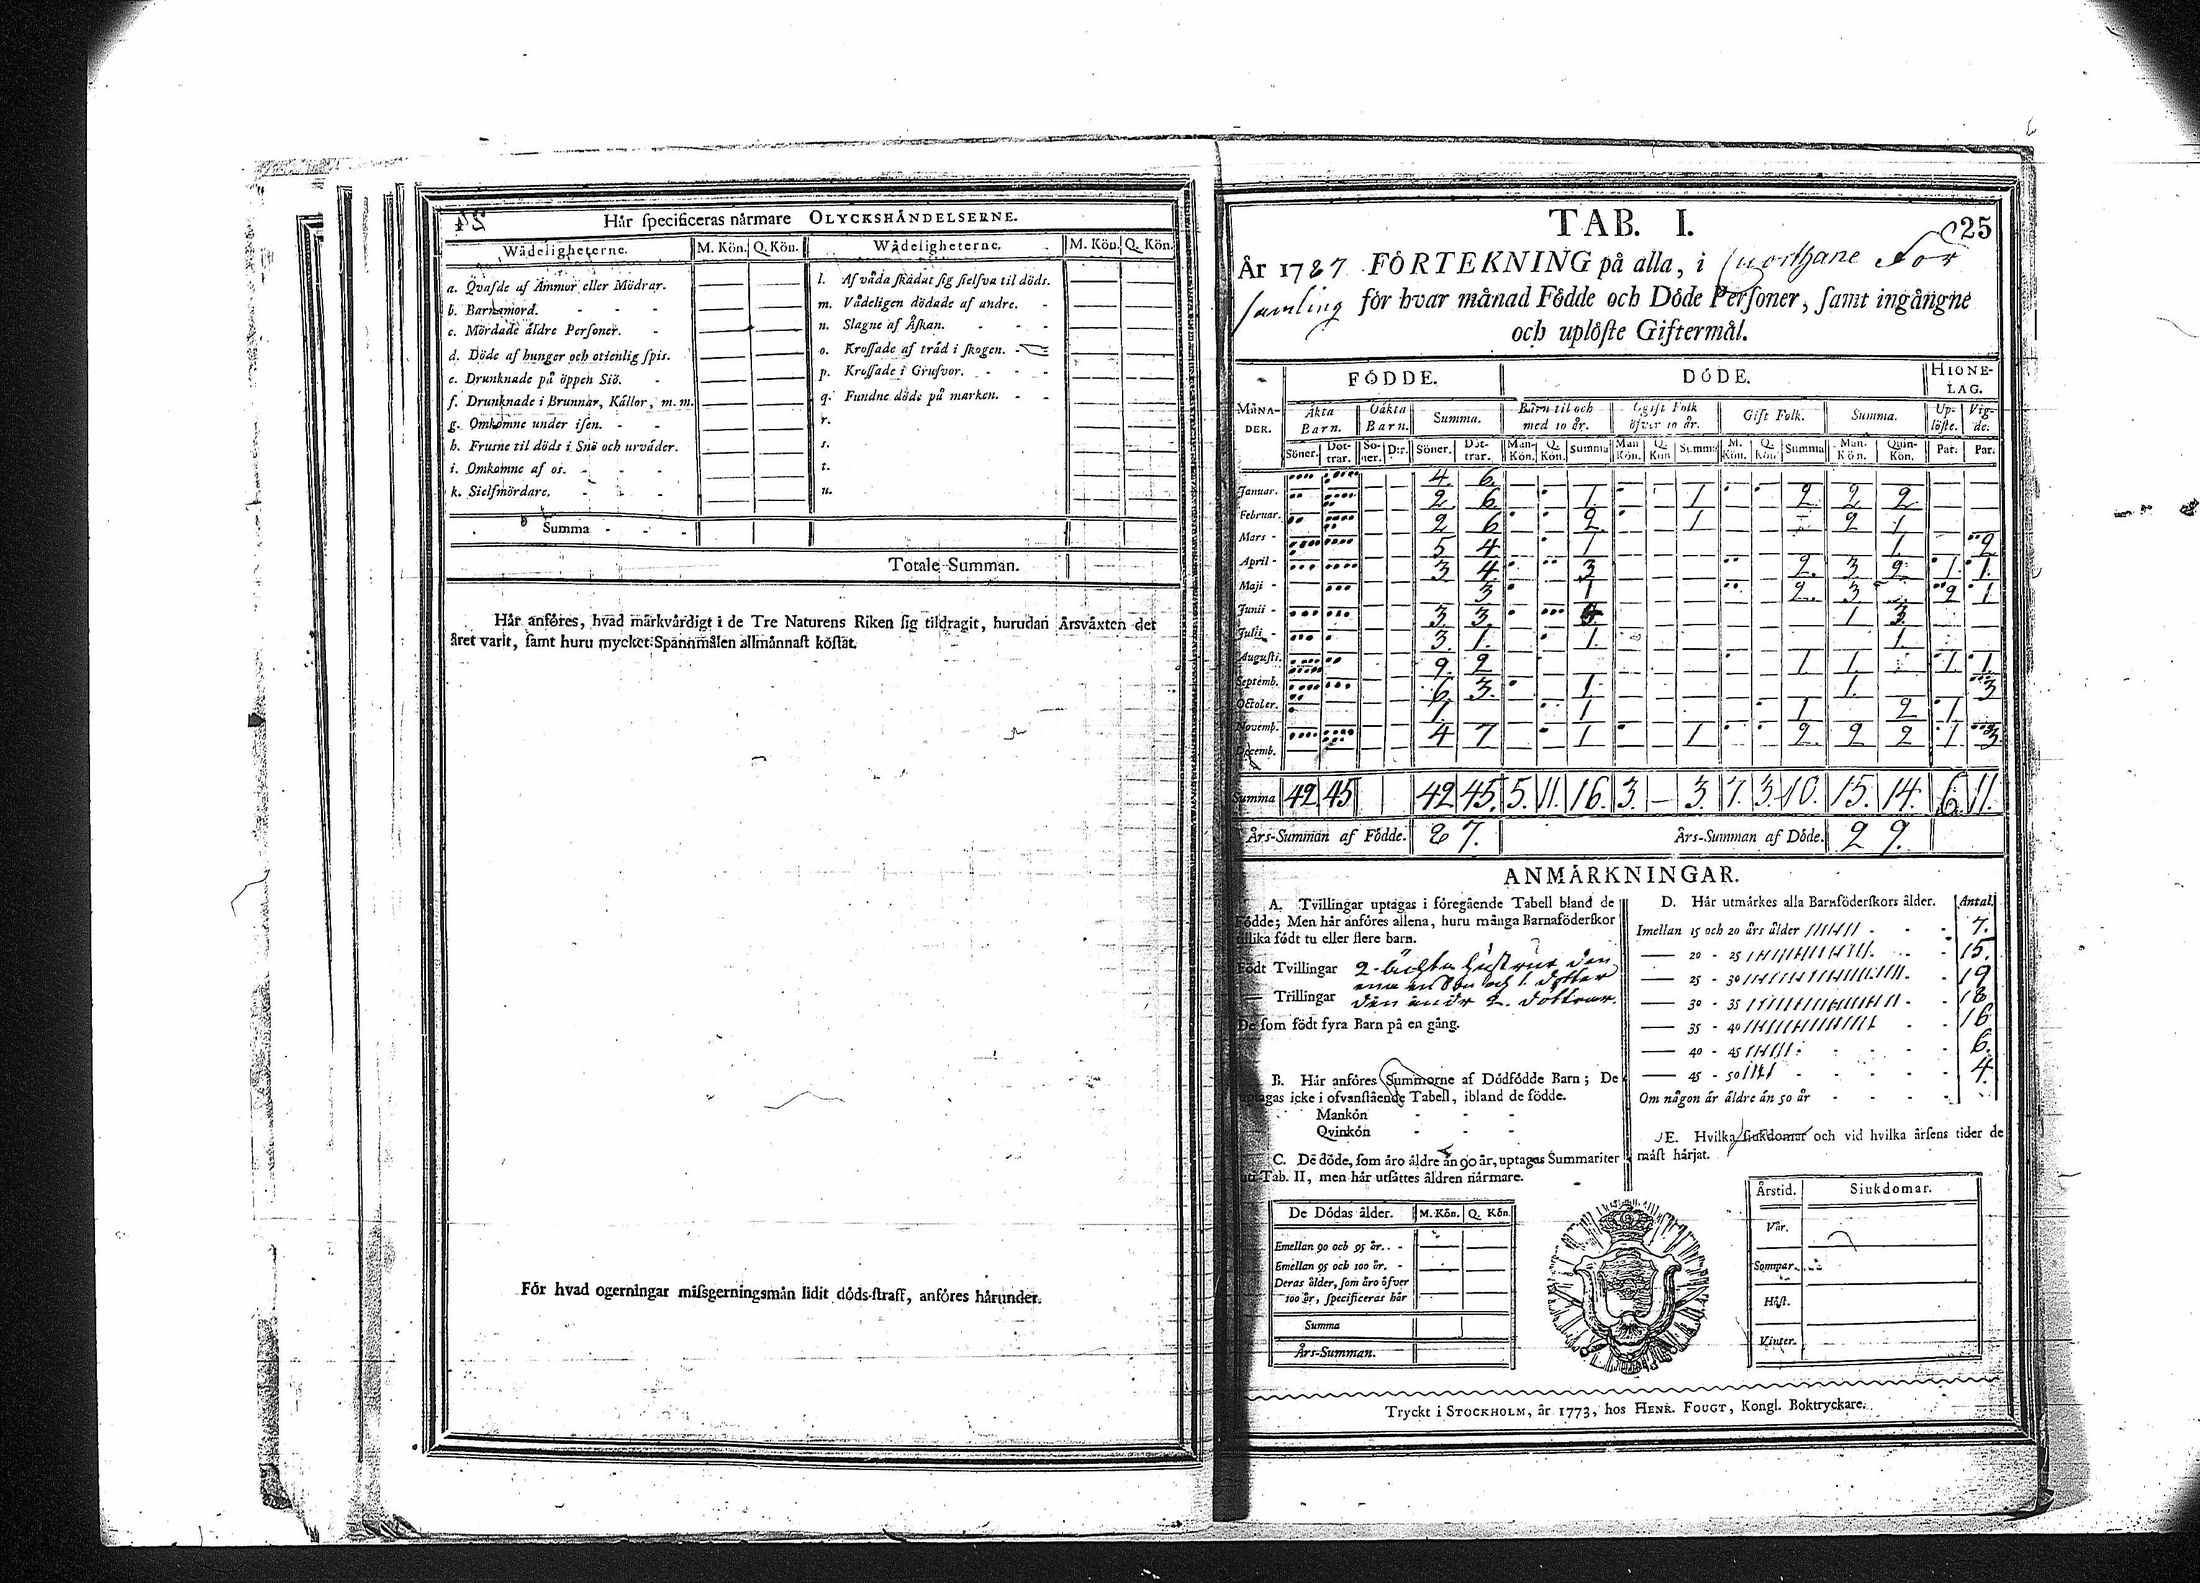 24
Hår specificeras nårmare OLYCKSHÅNDELSERNE.
Wådeligheterne. M. Kön. Q. Kön. Wådeligheterne. M. Kön. Q. Kön.
a. Qvafde af Ammor eller Mödrar.
b. Barnamord. - - -
c. Mördade åldre Personer. -
d. Döde af hunger och otienlig spis.
e. Drunknade på öppen Siö. -
f. Drunknade i Brunnar, Kållor, m. m.
g. Omkomne under isen. - -
h. Frusne til döds i Snö och urvåder.
i. Omkomne af os. - - -
k. Sielfmördare. - - -
l. Af våda skadat sig sielfva til döds.
m. Vådeligen dödade af andre. -
n. Slagne af Åskan. - - -
o. Krossade af tråd i skogen. -
p. Krossade i Grufvor. - - -
q. Fundne döde på marken. - -
r.
s.
t.
u.
Summa - - -
Totale Summan.
Hår anföres, hvad mårkvårdigt i de Tre Naturens Riken sig tildragit, hurudan Årsvåxten det
året varit, samt huru mycket Spannmålen allmånnast kostat.
För hvad ogerningar missgerningsmån lidit döds-straff, anföres hårunder.
25
TAB. I.
År 1787 FÖRTEKNING på alla, i För
samling för hvar månad Födde och Döde Personer, samt ingångne
och uplöste Giftermål.
FÖDDE. DÖDE. HIONE-
LAG.
MÅNA-
DER.
Åkta Barn. Oåkta Barn. Summa. Barn til och med 10 år. Ogift Folk öfver 10 år. Gift Folk. Summa. Up-löste. Vig-de.
Söner. Döt-trar. Sö-ner. D:r. Söner. Döt-trar. Man-Kön. Q. Kön. Summa Man Kön. Q. Kön Summa M. Kön. Q. Kön. Summa Man. Kön. Quin-Kön. Par. Par.
Januar. 4. 6.
Februar. 2 6 1 1 2 2 2
Mars - 2 6 2 1 2 1
April - 5 4 1 1 2
Maji - 3 4 3 2. 3 2 1. 1.
Junii - 3 1 2. 3 2 1
Julii - 3 3 1 3
Augusti. 3. 1. 1. 1.
Septemb. 9. 2 1 1. 1. 1.
October. 6 3. 1 1. 3
Novemb. 1. 1 1 2 1
Decemb. 4 7 1 1 2. 2 2 1 3.
Summa 42 45 42 45. 5. 11. 16. 3. — 3. 7. 3. 10. 15. 14. 6. 11.
Års-Summan af Födde. 87. Års-Summan af Döde. 29.
ANMÅRKNINGAR.
A. Tvillingar uptagas i föregående Tabell bland de
Födde; Men hår anföres allena, huru många Barnaföderskor
tillika födt tu eller flere barn.
Födt Tvillingar 2
— Trillingar
De som födt fyra Barn på en gång.
B. Hår anföres Summorne af Dödfödde Barn; De
uptagas icke i ofvanstående Tabell, ibland de födde.
Mankön - - -
Qvinkön - - -
C. De döde, som åro åldre ån 90 år, uptages Summariter
uti Tab. II, men hår utsåttes åldren nårmare.
De Dödas ålder. M. Kön. Q. Kön.
Emellan 90 och 95 år. - -
Emellan 95 och 100 år. -
Deras ålder, som åro öfver
100 år, specificeras hår
Summa
Års-Summan.
D. Hår utmårkes alla Barnföderskors ålder. Antal.
Imellan 15 och 20 års ålder /////// - - - 7.
— 20 - 25 - 15.
— 25 - 30 - 19
— 30 - 35 - 18
— 35 - 40 - - 16
— 40 - 45 ////// - - - - 6.
— 45 - 50 //// - - - - 4.
Om någon år åldre ån 50 år - - - -
E. Hvilka siukdomar och vid hvilka årsens tider de
måst hårjat.
Årstid. Siukdomar.
Vår.
Sommar.
Höst.
Vinter.
Tryckt i STOCKHOLM, år 1773, hos HENR. FOUGT, Kongl. Boktryckare.